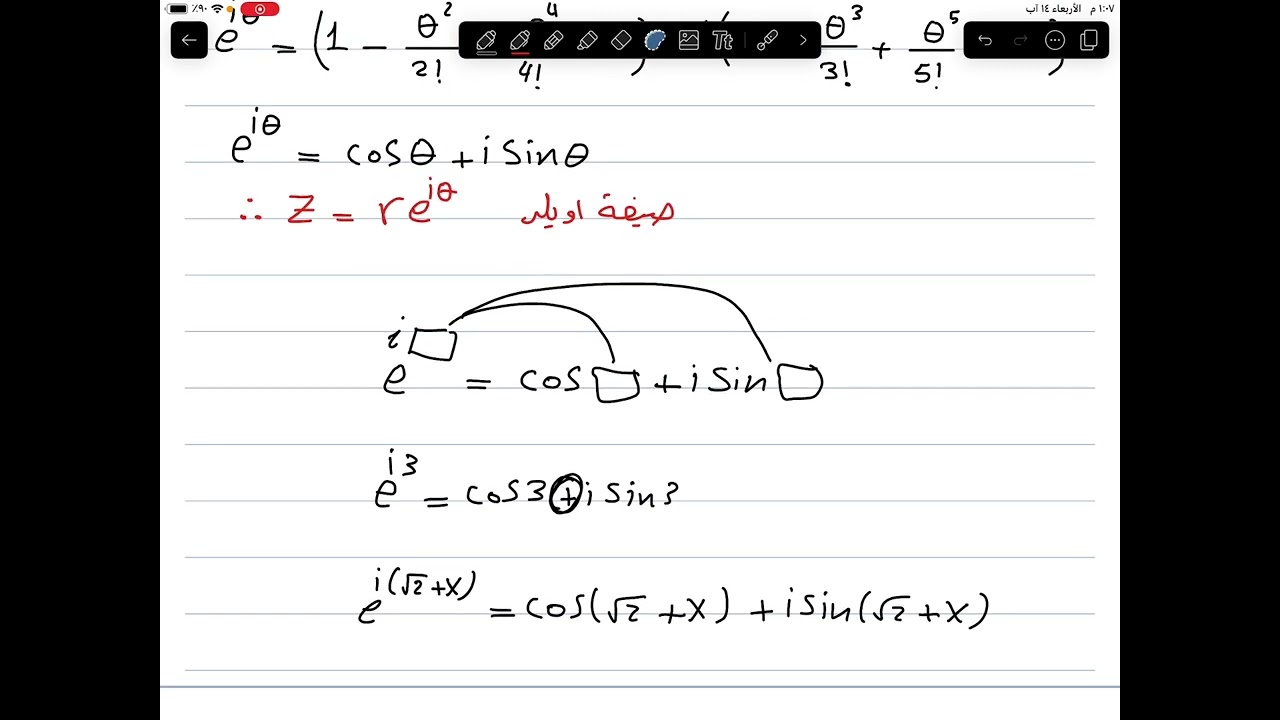 ١:٠٧ م الأربعاء ١٤ آب
٩٠٪
e^{iθ} = (1 - θ²/2! 4! ) ( θ³/3! + θ⁵/5! )
Tt
e^{iθ} = cosθ + i sinθ
∴ Z = re^{iθ} صيغة اويلر
e^{i□} = cos□ + i sin□
e^{i3} = cos3 + i sin3
e^{i(√2+x)} = cos(√2 + x) + i sin(√2 + x)